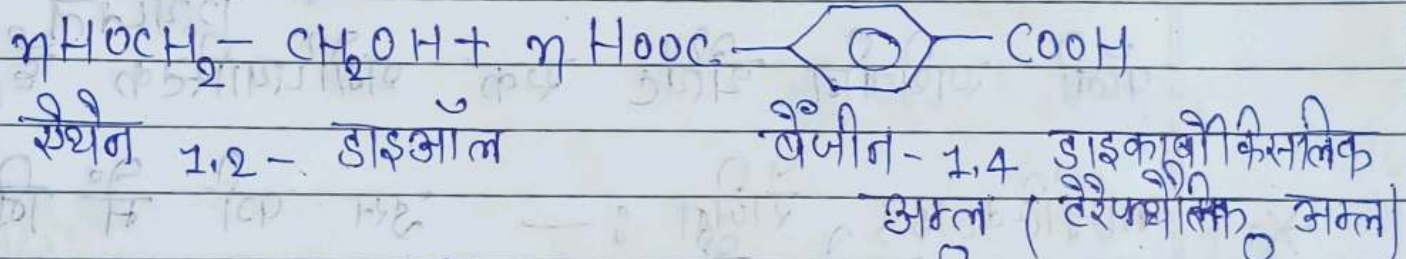 nHOCH₂ - CH₂OH + n HOOC-⌬-COOH
एथेन 1,2 - डाइऑल बेंजीन - 1,4 डाइकार्बोक्सिलिक
अम्ल (टेरेफ्थैलिक अम्ल)